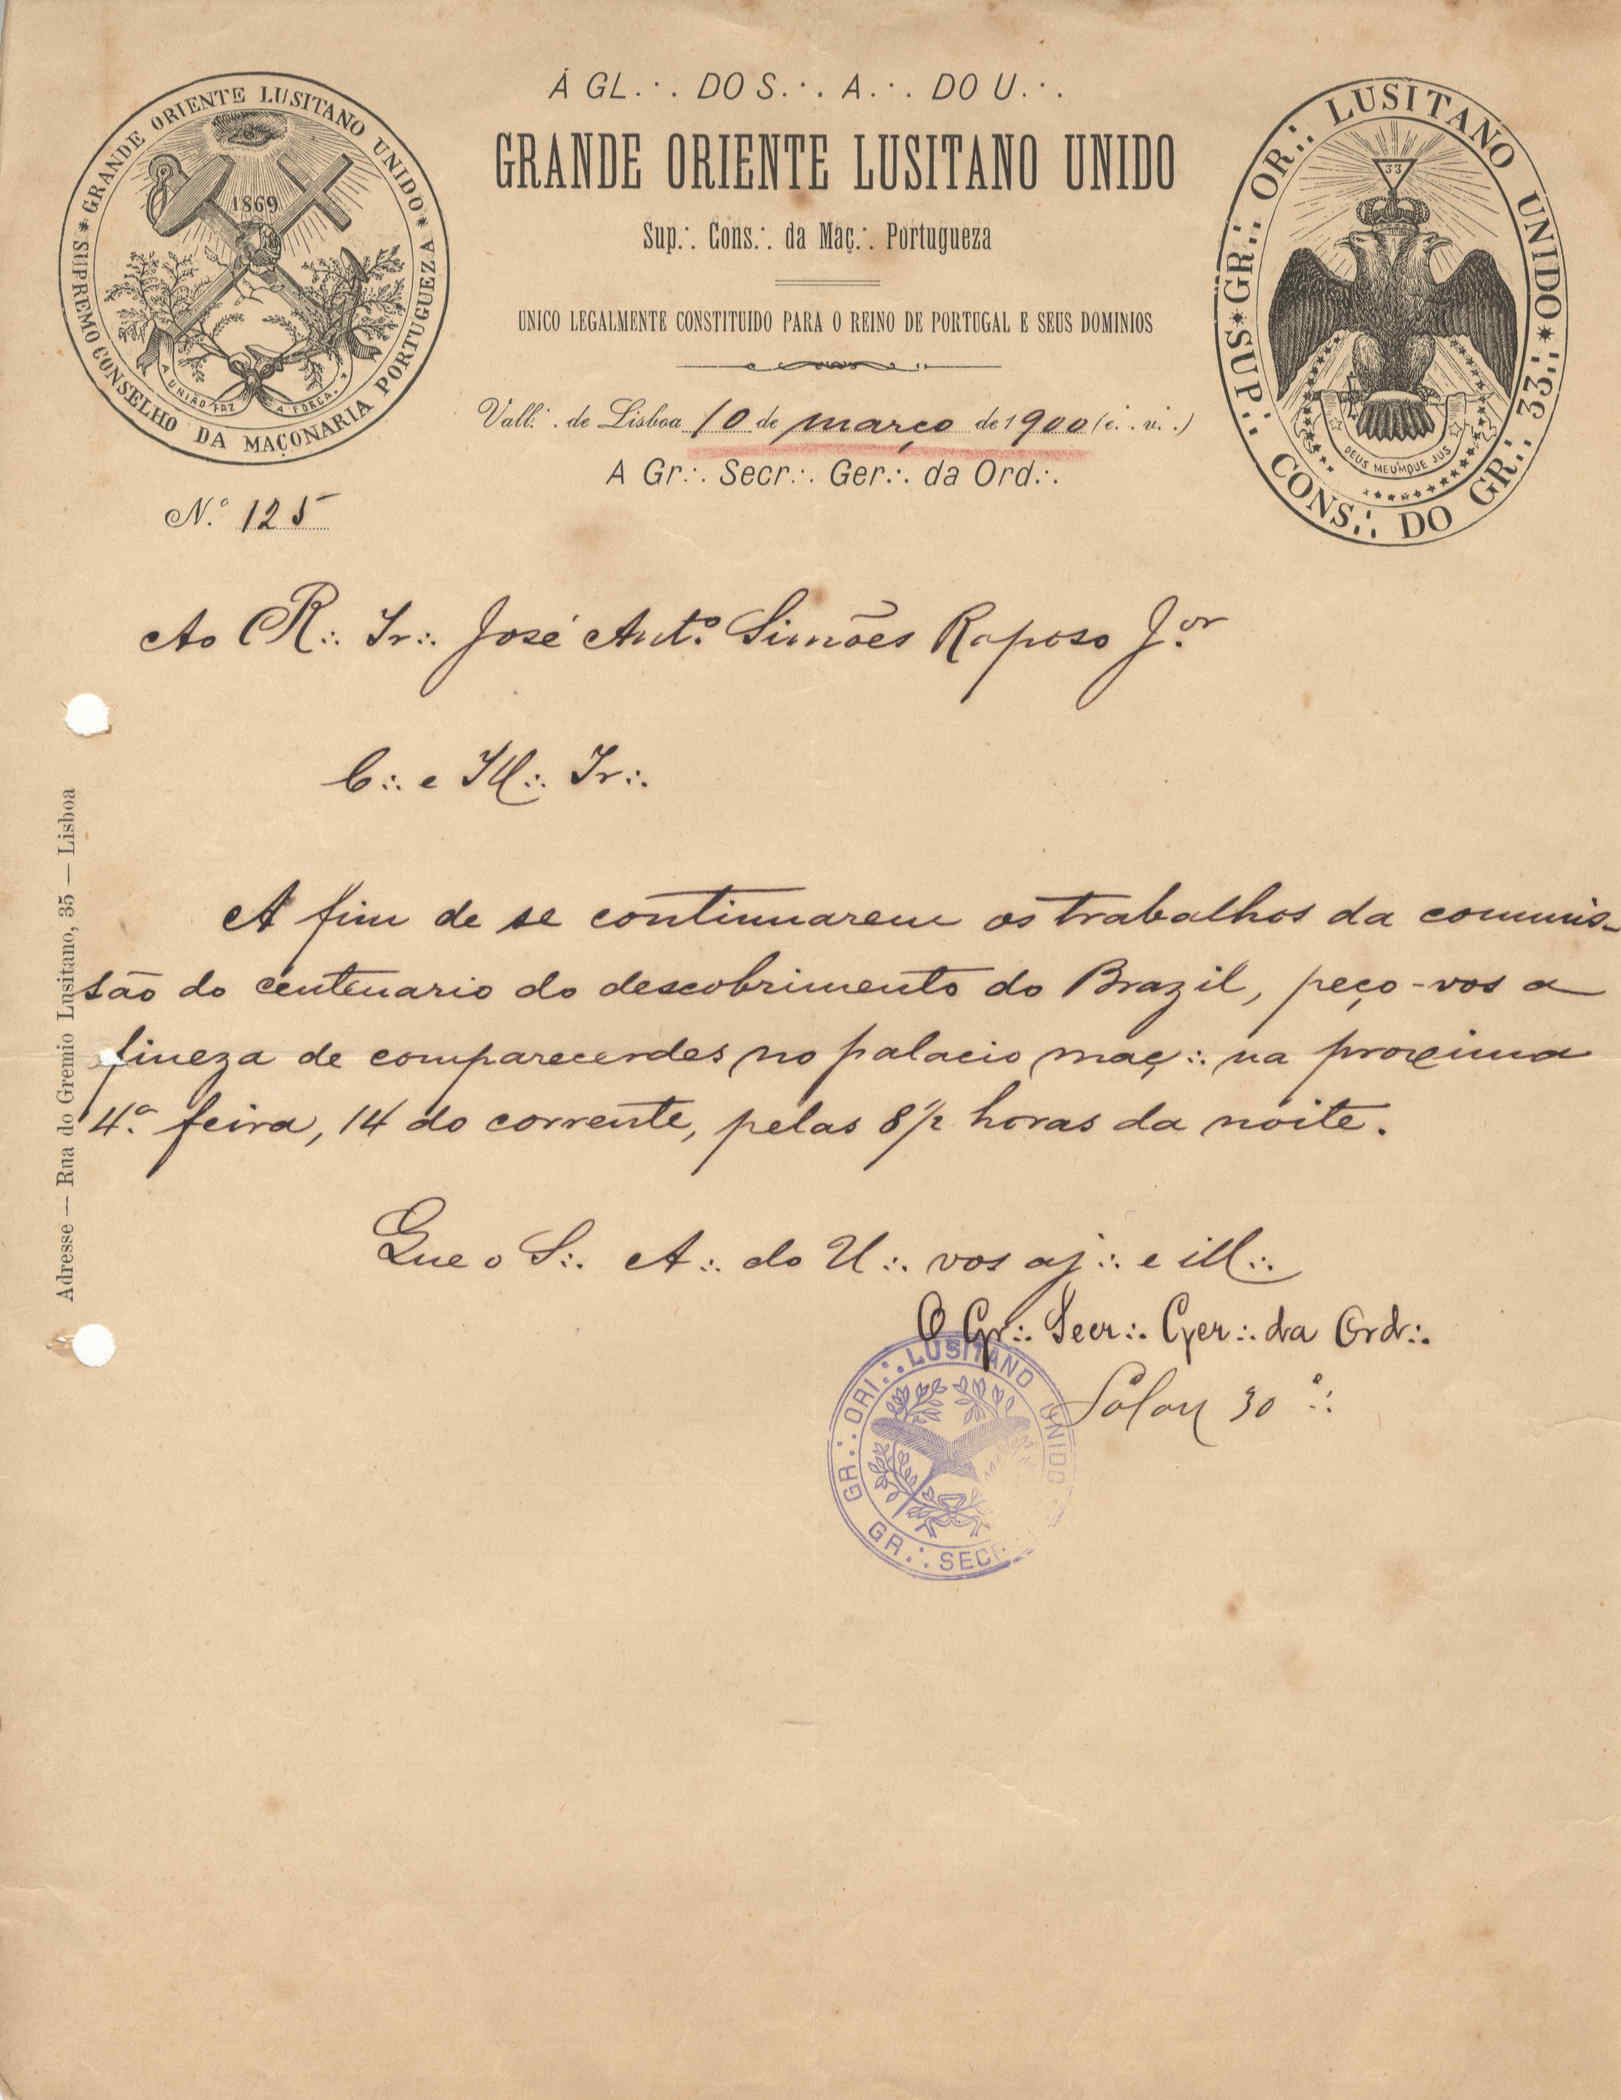 Á GL.·. DO S.·. A.·. DO U.·.
GRANDE ORIENTE LUSITANO UNIDO
Sup.·. Cons.·. da Maç.·. Portugueza
UNICO LEGALMENTE CONSTITUIDO PARA O REINO DE PORTUGAL E SEUS DOMINIOS
GRANDE ORIENTE LUSITANO UNIDO
SUPREMO CONSELHO DA MAÇONARIA PORTUGUEZA
1869
A UNIÃO FAZ A FORÇA
SUP.·. CONS.·. DO GR.·. 33.·.
GR.·. OR.·. LUSITANO UNIDO
33
DEUS MEUMQUE JUS
Vall.·. de Lisboa 10 de março de 1900 (e.·. v.·.)
A Gr.·. Secr.·. Ger.·. da Ord.·.
N.º 125
Ao R.·. Ir.·. José Antº Simões Raposo J.or
C.·. e Ill.·. Ir.·.
A fim de se continuarem os trabalhos da commis-
são do centenario do descobrimento do Brazil, peço-vos a
fineza de comparecerdes no palacio maç.·. na proxima
4.ª feira, 14 do corrente, pelas 8 1/2 horas da noite.
Que o S.·. A.·. do U.·. vos aj.·. e ill.·.
O Gr.·. Secr.·. Ger.·. da Ord.·.
Solon 30º.·.
GR.·. ORI.·. LUSITANO UNIDO
GR.·. SECR
Adresse — Rua do Gremio Lusitano, 35 — Lisboa